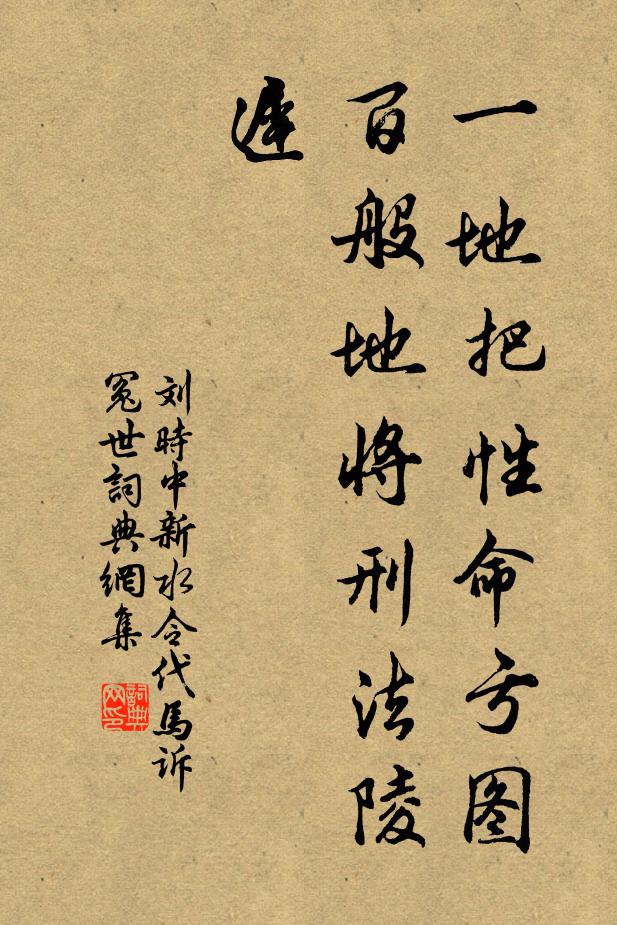 一地把性命亏图
百般地将刑法陵
遲
刘時中新水令代馬诉
冤世詞典網集
詞典
网印